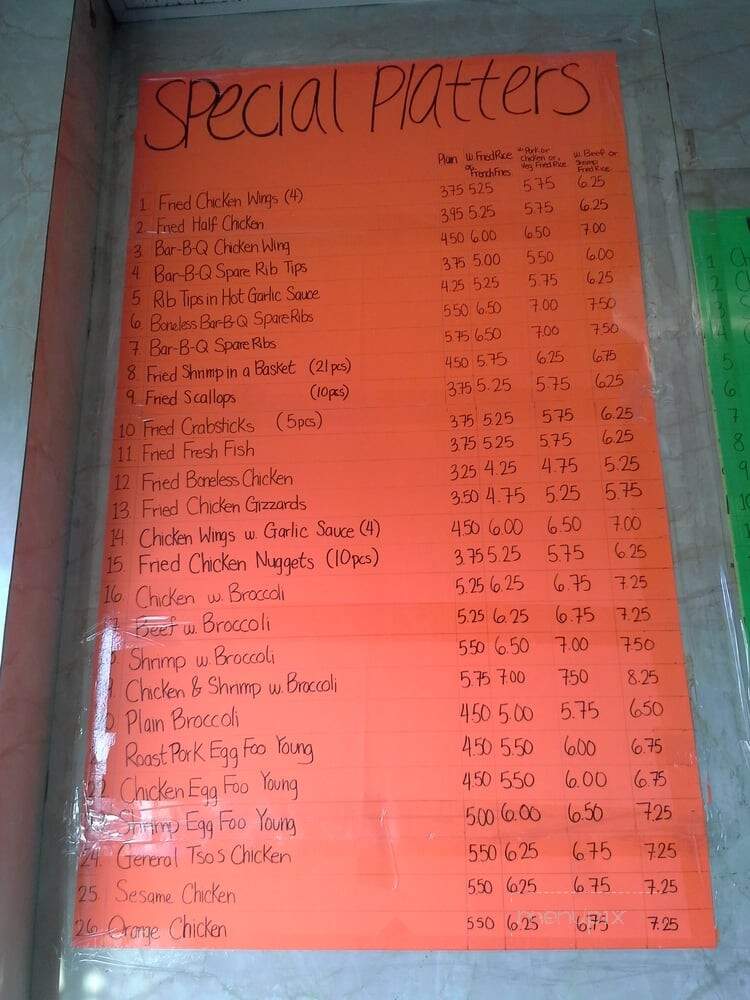 Special Platters
Plain
w. Fried Rice or French Fries
w. Pork or Chicken or Veg Fried Rice
w. Beef or Shrimp Fried Rice
1. Fried Chicken Wings (4) 3.75 5.25 5.75 6.25
2. Fried Half Chicken 3.95 5.25 5.75 6.25
3. Bar-B-Q Chicken Wing 4.50 6.00 6.50 7.00
4. Bar-B-Q Spare Rib Tips 3.75 5.00 5.50 6.00
5. Rib Tips in Hot Garlic Sauce 4.25 5.25 5.75 6.25
6. Boneless Bar-B-Q Spare Ribs 5.50 6.50 7.00 7.50
7. Bar-B-Q Spare Ribs 5.75 6.50 7.00 7.50
8. Fried Shrimp in a Basket (21 pcs) 4.50 5.75 6.25 6.75
9. Fried Scallops (10pcs) 3.75 5.25 5.75 6.25
10. Fried Crabsticks (5pcs) 3.75 5.25 5.75 6.25
11. Fried Fresh Fish 3.75 5.25 5.75 6.25
12. Fried Boneless Chicken 3.25 4.25 4.75 5.25
13. Fried Chicken Gizzards 3.50 4.75 5.25 5.75
14. Chicken Wings w. Garlic Sauce (4) 4.50 6.00 6.50 7.00
15. Fried Chicken Nuggets (10pcs) 3.75 5.25 5.75 6.25
16. Chicken w. Broccoli 5.25 6.25 6.75 7.25
Beef w. Broccoli 5.25 6.25 6.75 7.25
Shrimp w. Broccoli 5.50 6.50 7.00 7.50
Chicken & Shrimp w. Broccoli 5.75 7.00 7.50 8.25
Plain Broccoli 4.50 5.00 5.75 6.50
Roast Pork Egg Foo Young 4.50 5.50 6.00 6.75
22. Chicken Egg Foo Young 4.50 5.50 6.00 6.75
Shrimp Egg Foo Young 5.00 6.00 6.50 7.25
24. General Tso's Chicken 5.50 6.25 6.75 7.25
25. Sesame Chicken 5.50 6.25 6.75 7.25
26. Orange Chicken 5.50 6.25 6.75 7.25
menupix
1
2
3
4
5.
6
7
8
9